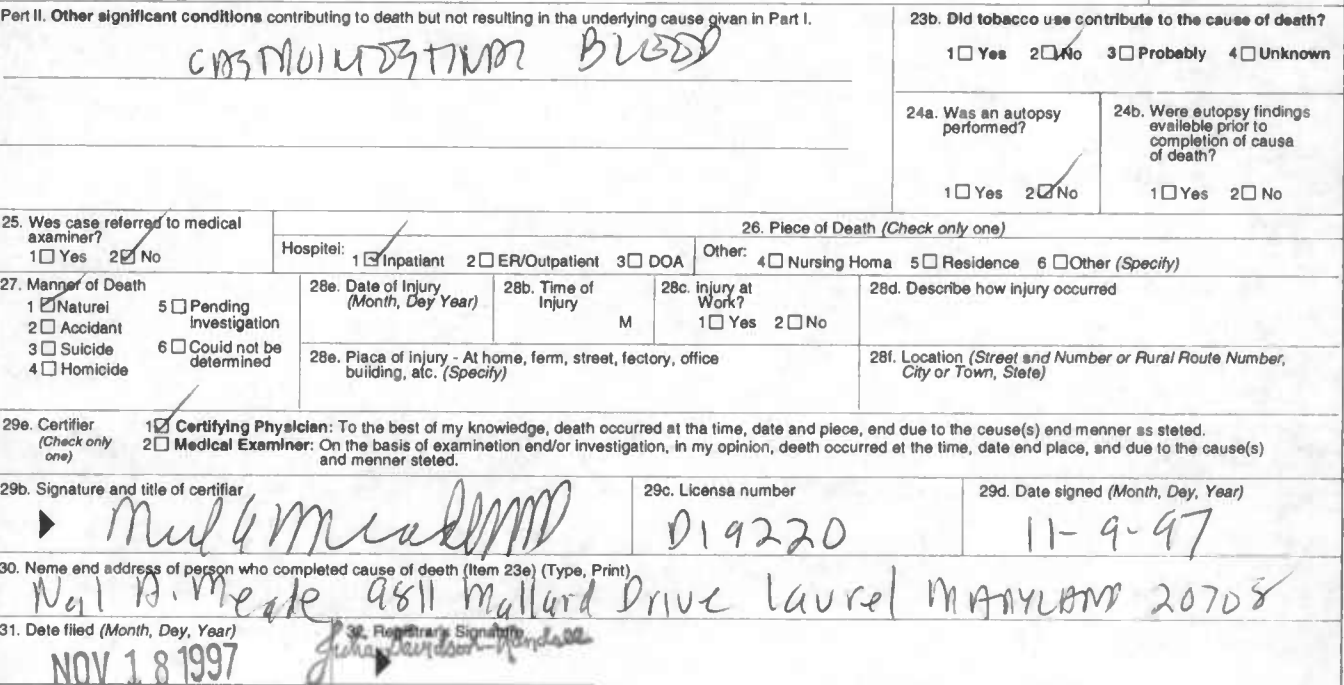 Part II. Other significant conditions contributing to death but not resulting in tha underlying cause givan in Part I.
GASTROINTESTINAL BLEED
23b. Did tobacco use contribute to the cause of death?
1☐ Yes 2☑ No 3☐ Probably 4☐ Unknown
24a. Was an autopsy performed?
1☐ Yes 2☑ No
24b. Were eutopsy findings
eveileble prior to
completion of causa
of death?
1☐ Yes 2☐ No
25. Wes case referred to medical
axaminer?
1☐ Yes 2☑ No
26. Piece of Death (Check only one)
Hospitei: 1☑ Inpatient 2☐ ER/Outpatient 3☐ DOA Other: 4☐ Nursing Homa 5☐ Residence 6☐ Other (Specify)
27. Manner of Death
1☑ Naturei 5☐ Pending investigation
2☐ Accidant
3☐ Suicide 6☐ Couid not be determined
4☐ Homicide
28e. Date of Injury
(Month, Dey Year)
28b. Time of
Injury
M
28c. injury at
Work?
1☐ Yes 2☐ No
28d. Describe how injury occurred
28e. Piaca of injury - At home, ferm, street, fectory, office
building, atc. (Specify)
28f. Location (Street and Number or Rural Route Number,
City or Town, Stete)
29e. Certifier
(Check only
one)
1☑ Certifying Physician: To the best of my knowledge, death occurred at tha time, date and piece, end due to the ceuse(s) end menner as steted.
2☐ Medical Examiner: On the basis of examinetion end/or investigation, in my opinion, deeth occurred et the time, date end place, and due to the cause(s)
and menner steted.
29b. Signature and title of certifiar
Neil A Meade MD
29c. Licensa number
D19220
29d. Date signed (Month, Day, Year)
11-9-97
30. Neme end address of person who completed cause of deeth (Item 23e) (Type, Print)
Neil A. Meade 9811 Mallard Drive Laurel MARYLAND 20708
31. Date filed (Month, Day, Year)
NOV 18 1997
32. Registrar's Signature